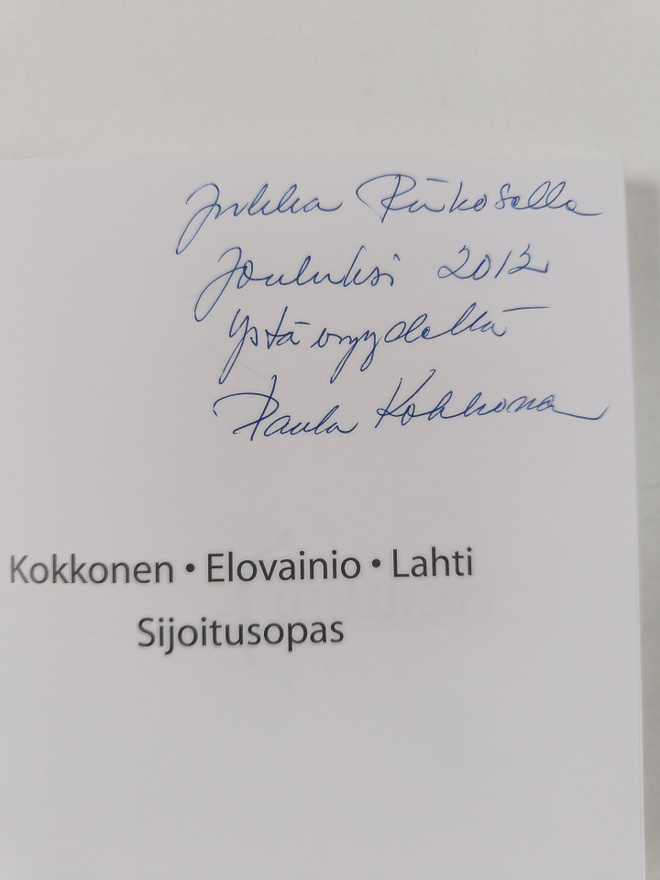 Jukka Riikoselle
Jouluksi 2012
Ystävyydellä
Paula Kokkonen
Kokkonen • Elovainio • Lahti
Sijoitusopas